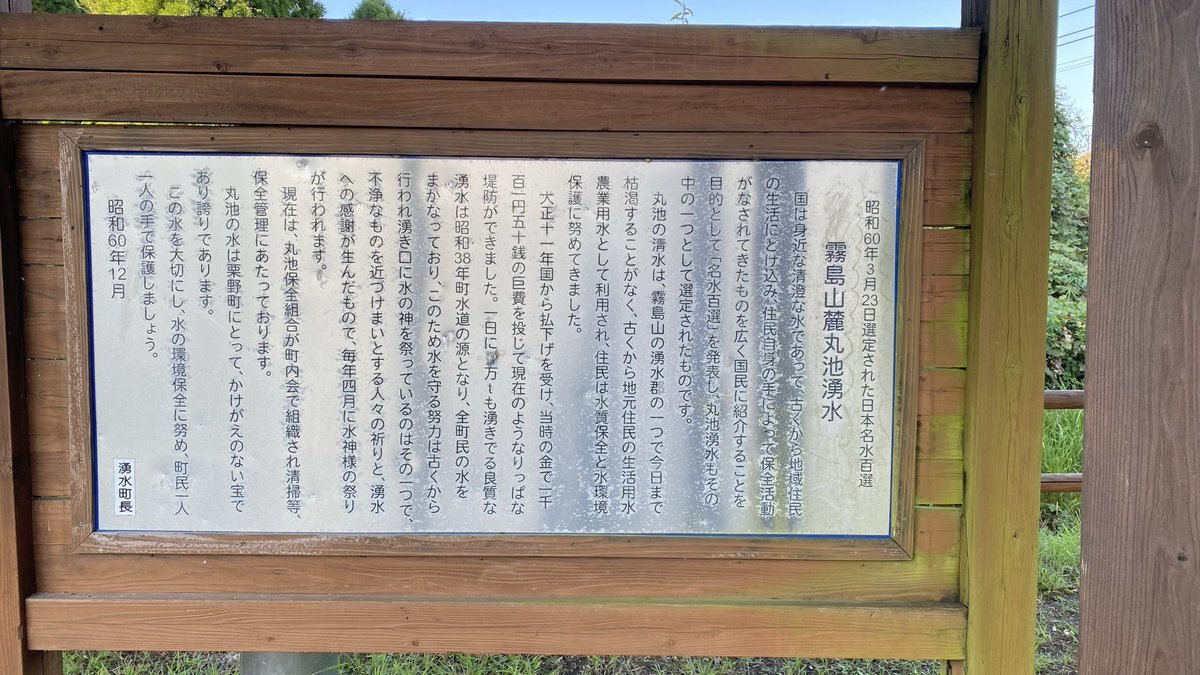 昭和60年3月23日選定された日本名水百選
霧島山麓丸池湧水
国は身近な清澄な水であって、古くから地域住民
の生活にとけ込み、住民自身の手によって保全活動
がなされてきたものを広く国民に紹介することを
目的として「名水百選」を発表し、丸池湧水もその
中の一つとして選定されたものです。
丸池の清水は、霧島山の湧水郡の一つで今日まで
枯渇することがなく、古くから地元住民の生活用水
農業用水として利用され、住民は水質保全と水環境
保護に努めてきました。
大正十一年国から払下げを受け、当時の金で二千
百二円五十銭の巨費を投じて現在のようなりっぱな
堤防ができました。一日に 万tも湧きでる良質な
湧水は昭和38年町水道の源となり、全町民の水を
まかなっており、このため水を守る努力は古くから
行われ湧き口に水の神を祭っているのはその一つで、
不浄なものを近づけまいとする人々の祈りと、湧水
への感謝が生んだもので、毎年四月に水神様の祭り
が行われます。
現在は、丸池保全組合が町内会で組織され清掃等、
保全管理にあたっております。
丸池の水は栗野町にとって、かけがえのない宝で
あり誇りであります。
この水を大切にし、水の環境保全に努め、町民一人
一人の手で保護しましょう。
昭和60年12月
湧水町長